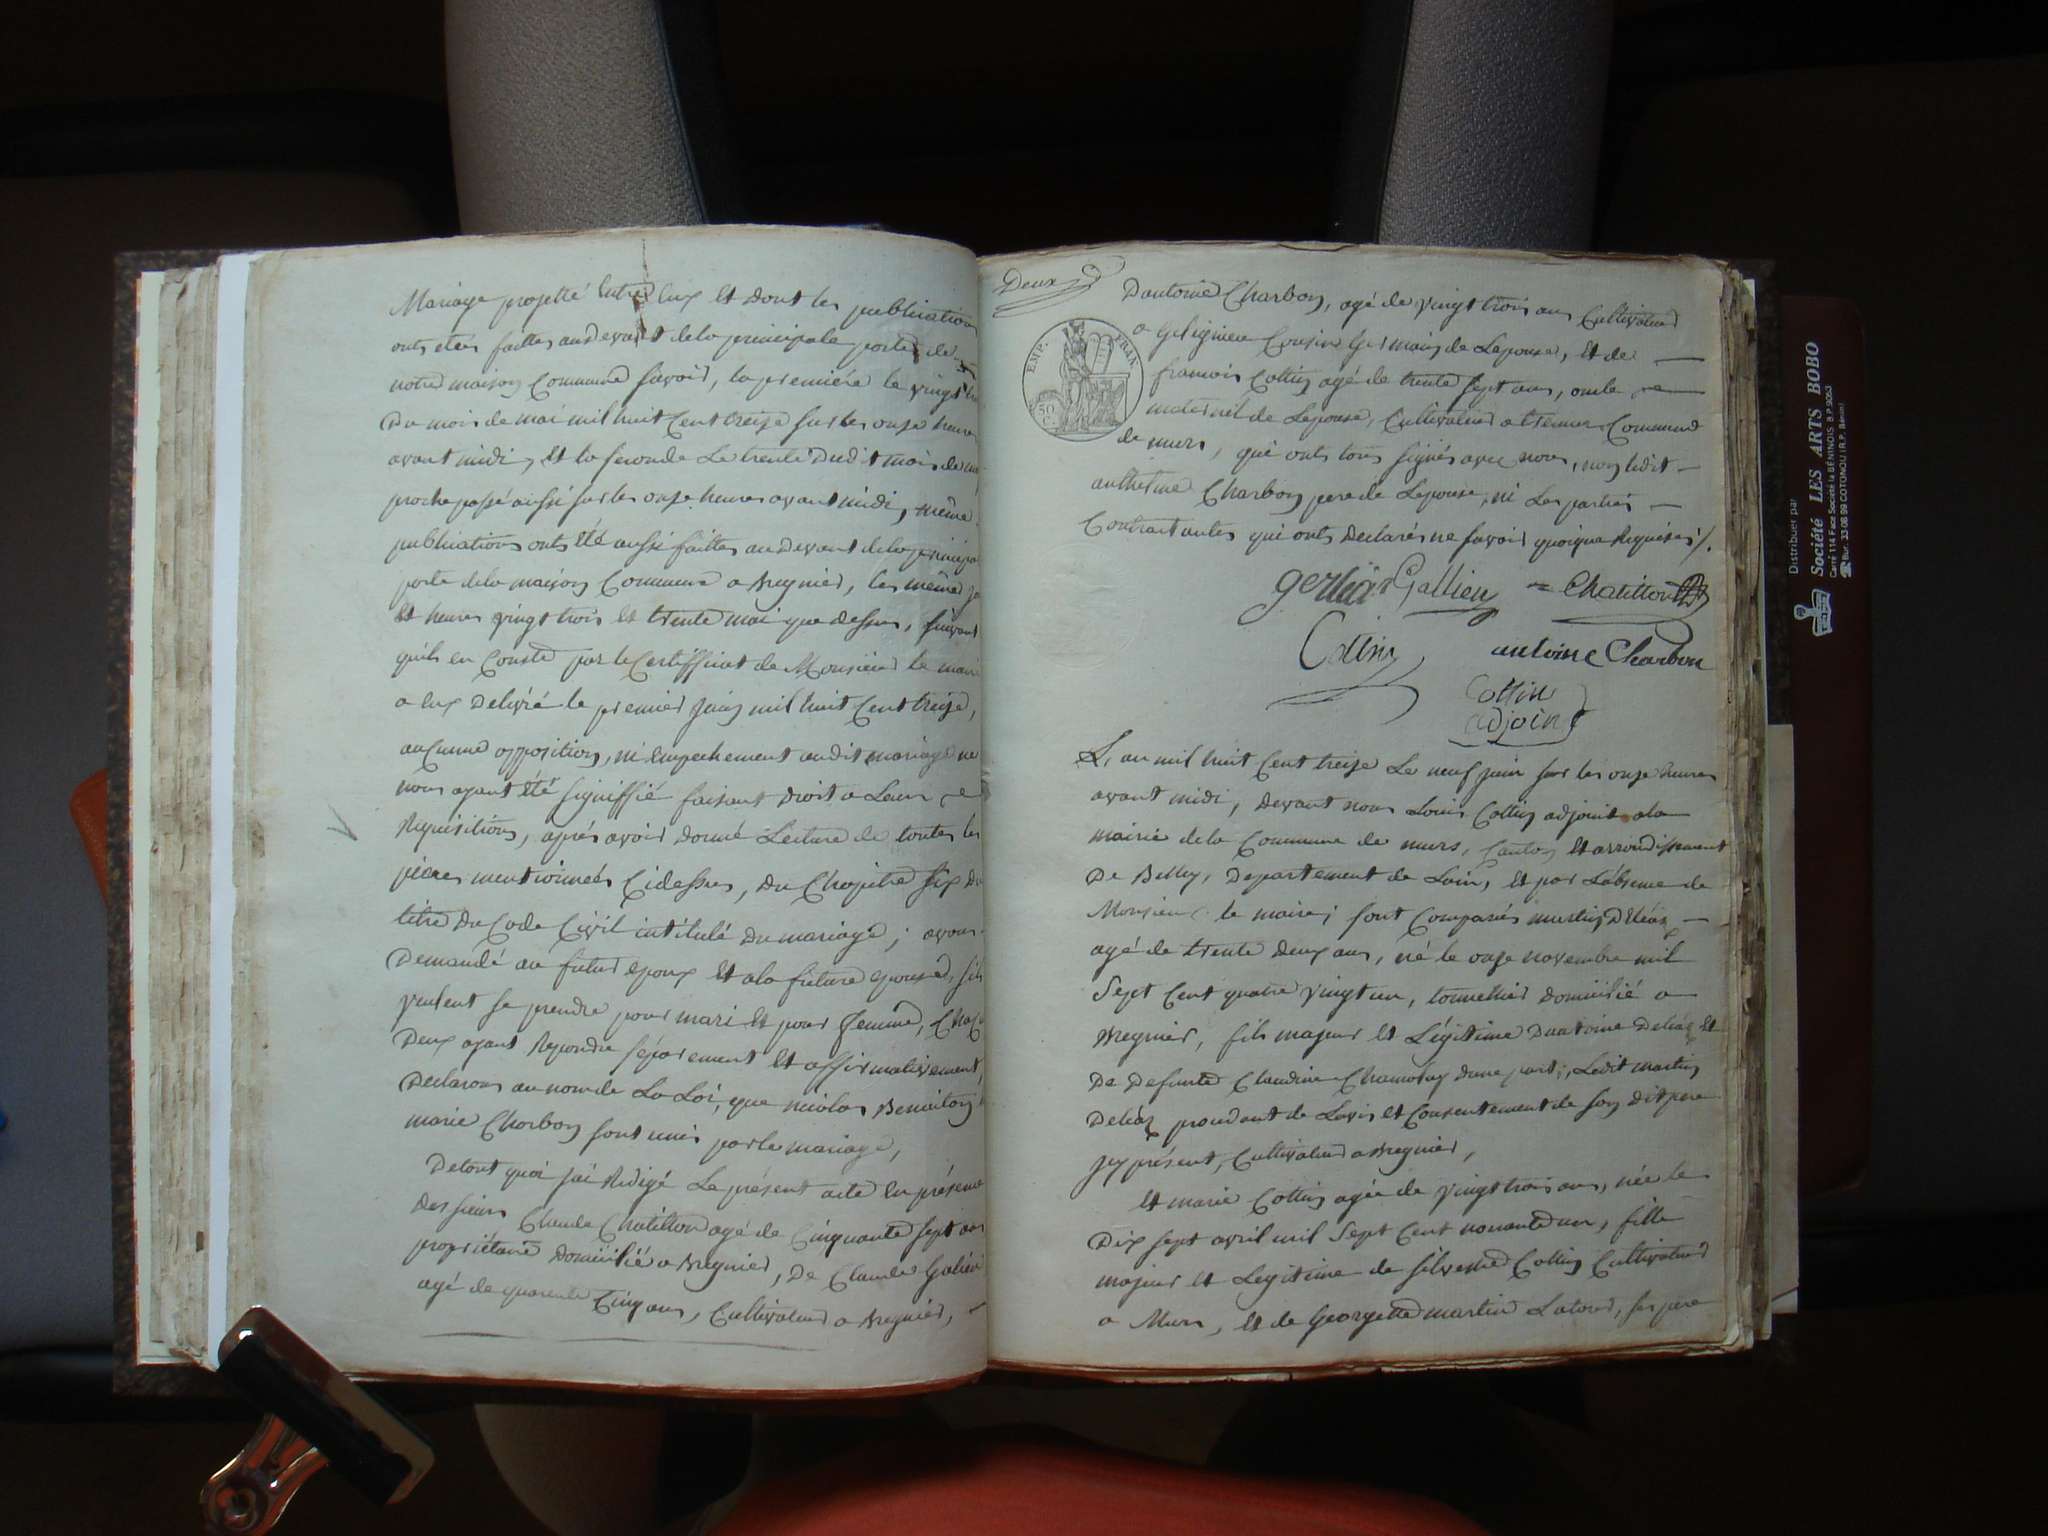 Mariage projetté Entre Eux Et dont les publication
onts etées faittes audevant dela principale porte de
notre maison Commune savoir, la premiére le vingt
Du mois de mai mil huit Cent treize sur les onze heures
avant midi, Et la seconde Le trente Dudit mois de mai
proche passé aussi sur les onze heures avant midi, même
publications onts Eté aussi faittes au Devant dela principa
porte dela maison Commune a Bregnier, les même
Et heures vingt trois Et trente mai que dessus, suivant
quils en Conste par le Certifficat de Monsieur le maire
a Eux Delivré le premier juin mil huit Cent treize,
auCunne opposition, ni Empechement audit mariage ne
nous ayant Eté signiffié faisant droit a Leur
Requisition, aprés avoir donné Lecture de toutes les
piéces mentionnées Cidessus, du Chapitre six Du
titre Du Code Civil intitulé Du mariage; avons
Demandé au futur epoux Et ala future epouse, sils
veulent se prendre pour mari Et pour femme, Chaq
Deux ayant Repondu séparement Et affirmativement,
Declarons au nom de La Loi, que nicolas Benoiton
marie Charbon sont unis par le mariage,
Detout quoi jai Redigé Le présent acte En présence
Des sieurs Claude Chatillon agé de Cinquante sept ans
propriétaire domicilié a Bregnier, De Claude Galien
agé de quarente Cinq ans, Cultivateur a Bregnier,
Deux
EMP. FRAN.
50 C.
Dantoine Charbon, agé de vingt trois ans Cultivateur
a Gelignieu Cousin Germain de Lepouse, Et de
francois Cottin agé de trente sept ans, oncle
maternel de Lepouse, Cultivateur a Commune
de murs, qui onts tous signés avec nous, non ledit
anthelme Charbon pere de Lepouse, ni Les parties
Contractantes qui onts Declarés ne savoir quoique Requises /.
gerliat Gallien = Chatillon
Cottin antoine Charbon
Cottin
adjoint
L, an mil huit Cent treize Le neuf juin sur les onze heures
avant midi, devant nous Louis Cottin adjoint ala
mairie dela Commune de murs, Canton Et arrondissement
De Belley, Departement de Lain, Et par Labsence de
Monsieur le maire; sont Comparus martin Deléaz
agé de trente deux ans, né le onze novembre mil
Sept Cent quatre vingt un, tonnellier domicilié a
Bregnier, fils majeur Et Légitime Dantoine Deléaz Et
De Defunte Claudine Chamotay dune part, Ledit martin
Deléaz procédant de Lavis Et Consentement de son Dit pere
jcy présent, Cultivateur a Bregnier,
Et marie Cottin agée de vingt trois ans, née le
Dix sept avril mil Sept Cent nonante un, fille
majeur Et Legitime de silvestre Cottin Cultivateur
a Murs, Et de Georgette martin Latour, ses pere
Distribuer par
Société LES ARTS BOBO
Carré 114 Face Société la BÉNINOIS B.P. 9053
☎ Bur. 33 08 99 COTONOU (R.P. Bénin)